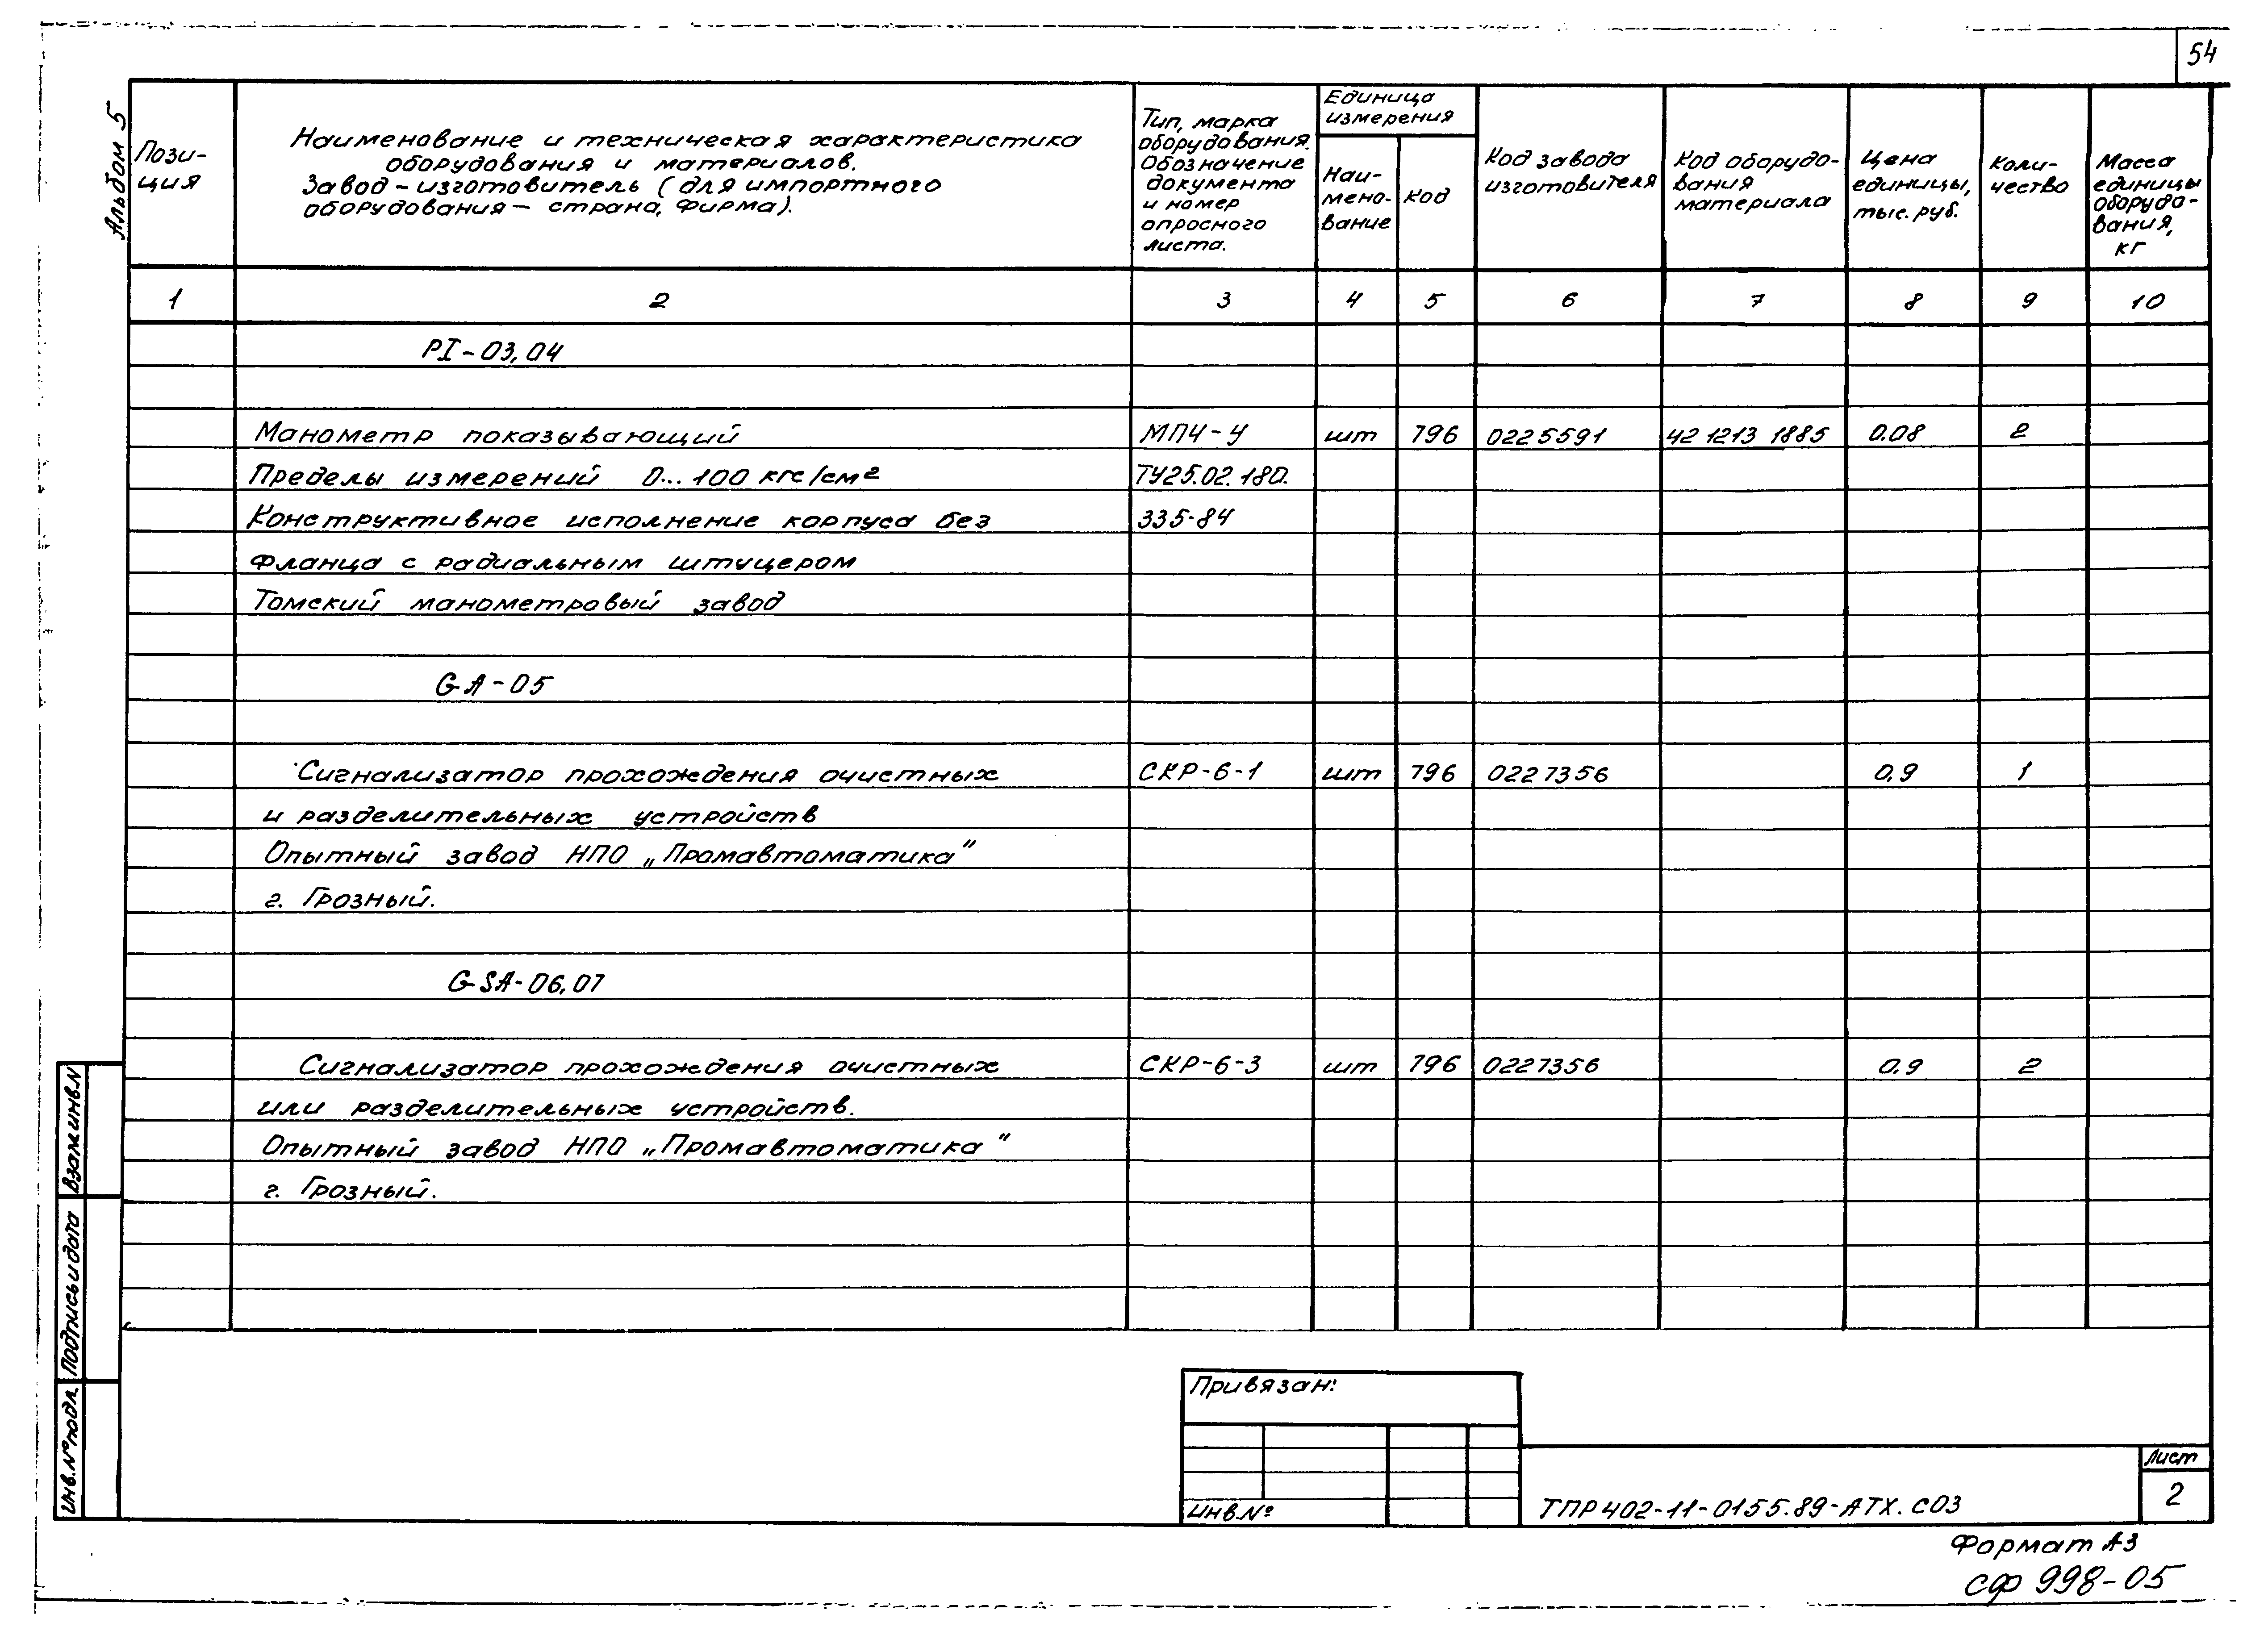 54
Альбом 5
Пози-
ция
Наименование и техническая характеристика
оборудования и материалов.
Завод-изготовитель (для импортного
оборудования — страна, фирма).
Тип, марка
оборудования.
Обозначение
документа
и номер
опросного
листа.
Единица
измерения
Наи-
мено-
вание
Код
Код завода
изготовителя
Код оборудо-
вания
материала
Цена
единицы,
тыс. руб.
Коли-
чество
Масса
единицы
оборудо-
вания,
кг
1 2 3 4 5 6 7 8 9 10
PI-03,04
Манометр показывающий МПЧ-У шт 796 0225591 42 1213 1885 0.08 2
Пределы измерений 0...100 кгс/см² ТУ25.02.180.
Конструктивное исполнение корпуса без 335-84
фланца с радиальным штуцером
Томский манометровый завод
GA-05
Сигнализатор прохождения очистных СКР-6-1 шт 796 0227356 0,9 1
и разделительных устройств
Опытный завод НПО „Промавтоматика"
г. Грозный.
GSA-06,07
Сигнализатор прохождения очистных СКР-6-3 шт 796 0227356 0.9 2
или разделительных устройств.
Опытный завод НПО „Промавтоматика"
г. Грозный.
Взам.инв.N
Подпись и дата
Инв.№подл.
Привязан:
Инв.№
ТПР 402-11-0155.89-АТХ.СО3
Лист
2
Формат А3
СФ 998-05